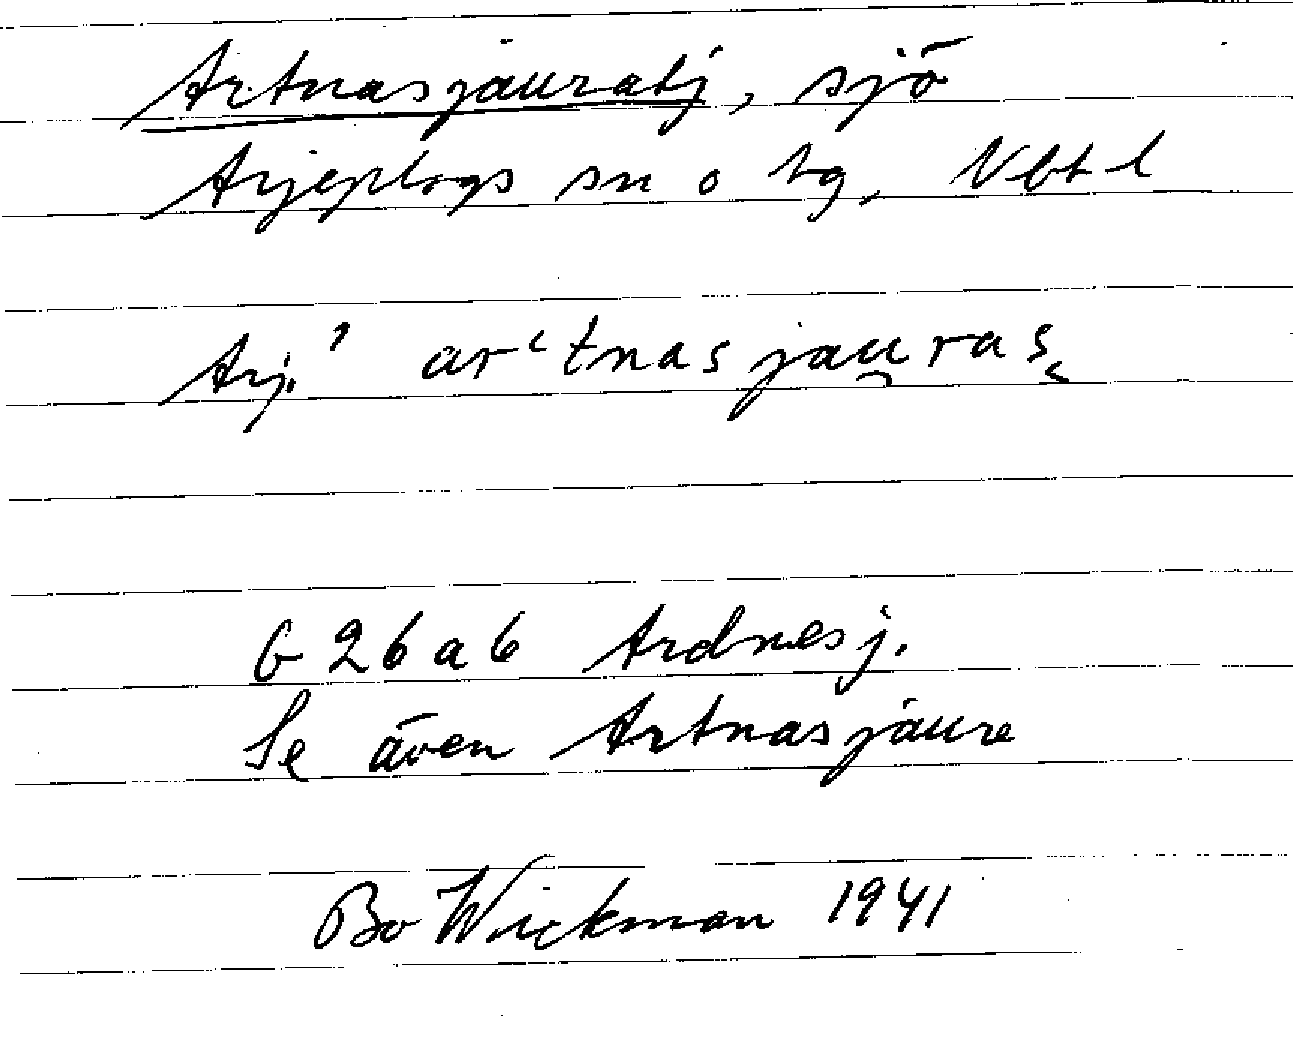 Artnasjauratj, sjö
Arjeplogs sn o tg, Vbtl
Arj. ˀ arʿtnasjau̯ras̜
G 26 a b Ardnesj.
Se även Artnasjaure
Bo Wickman 1941